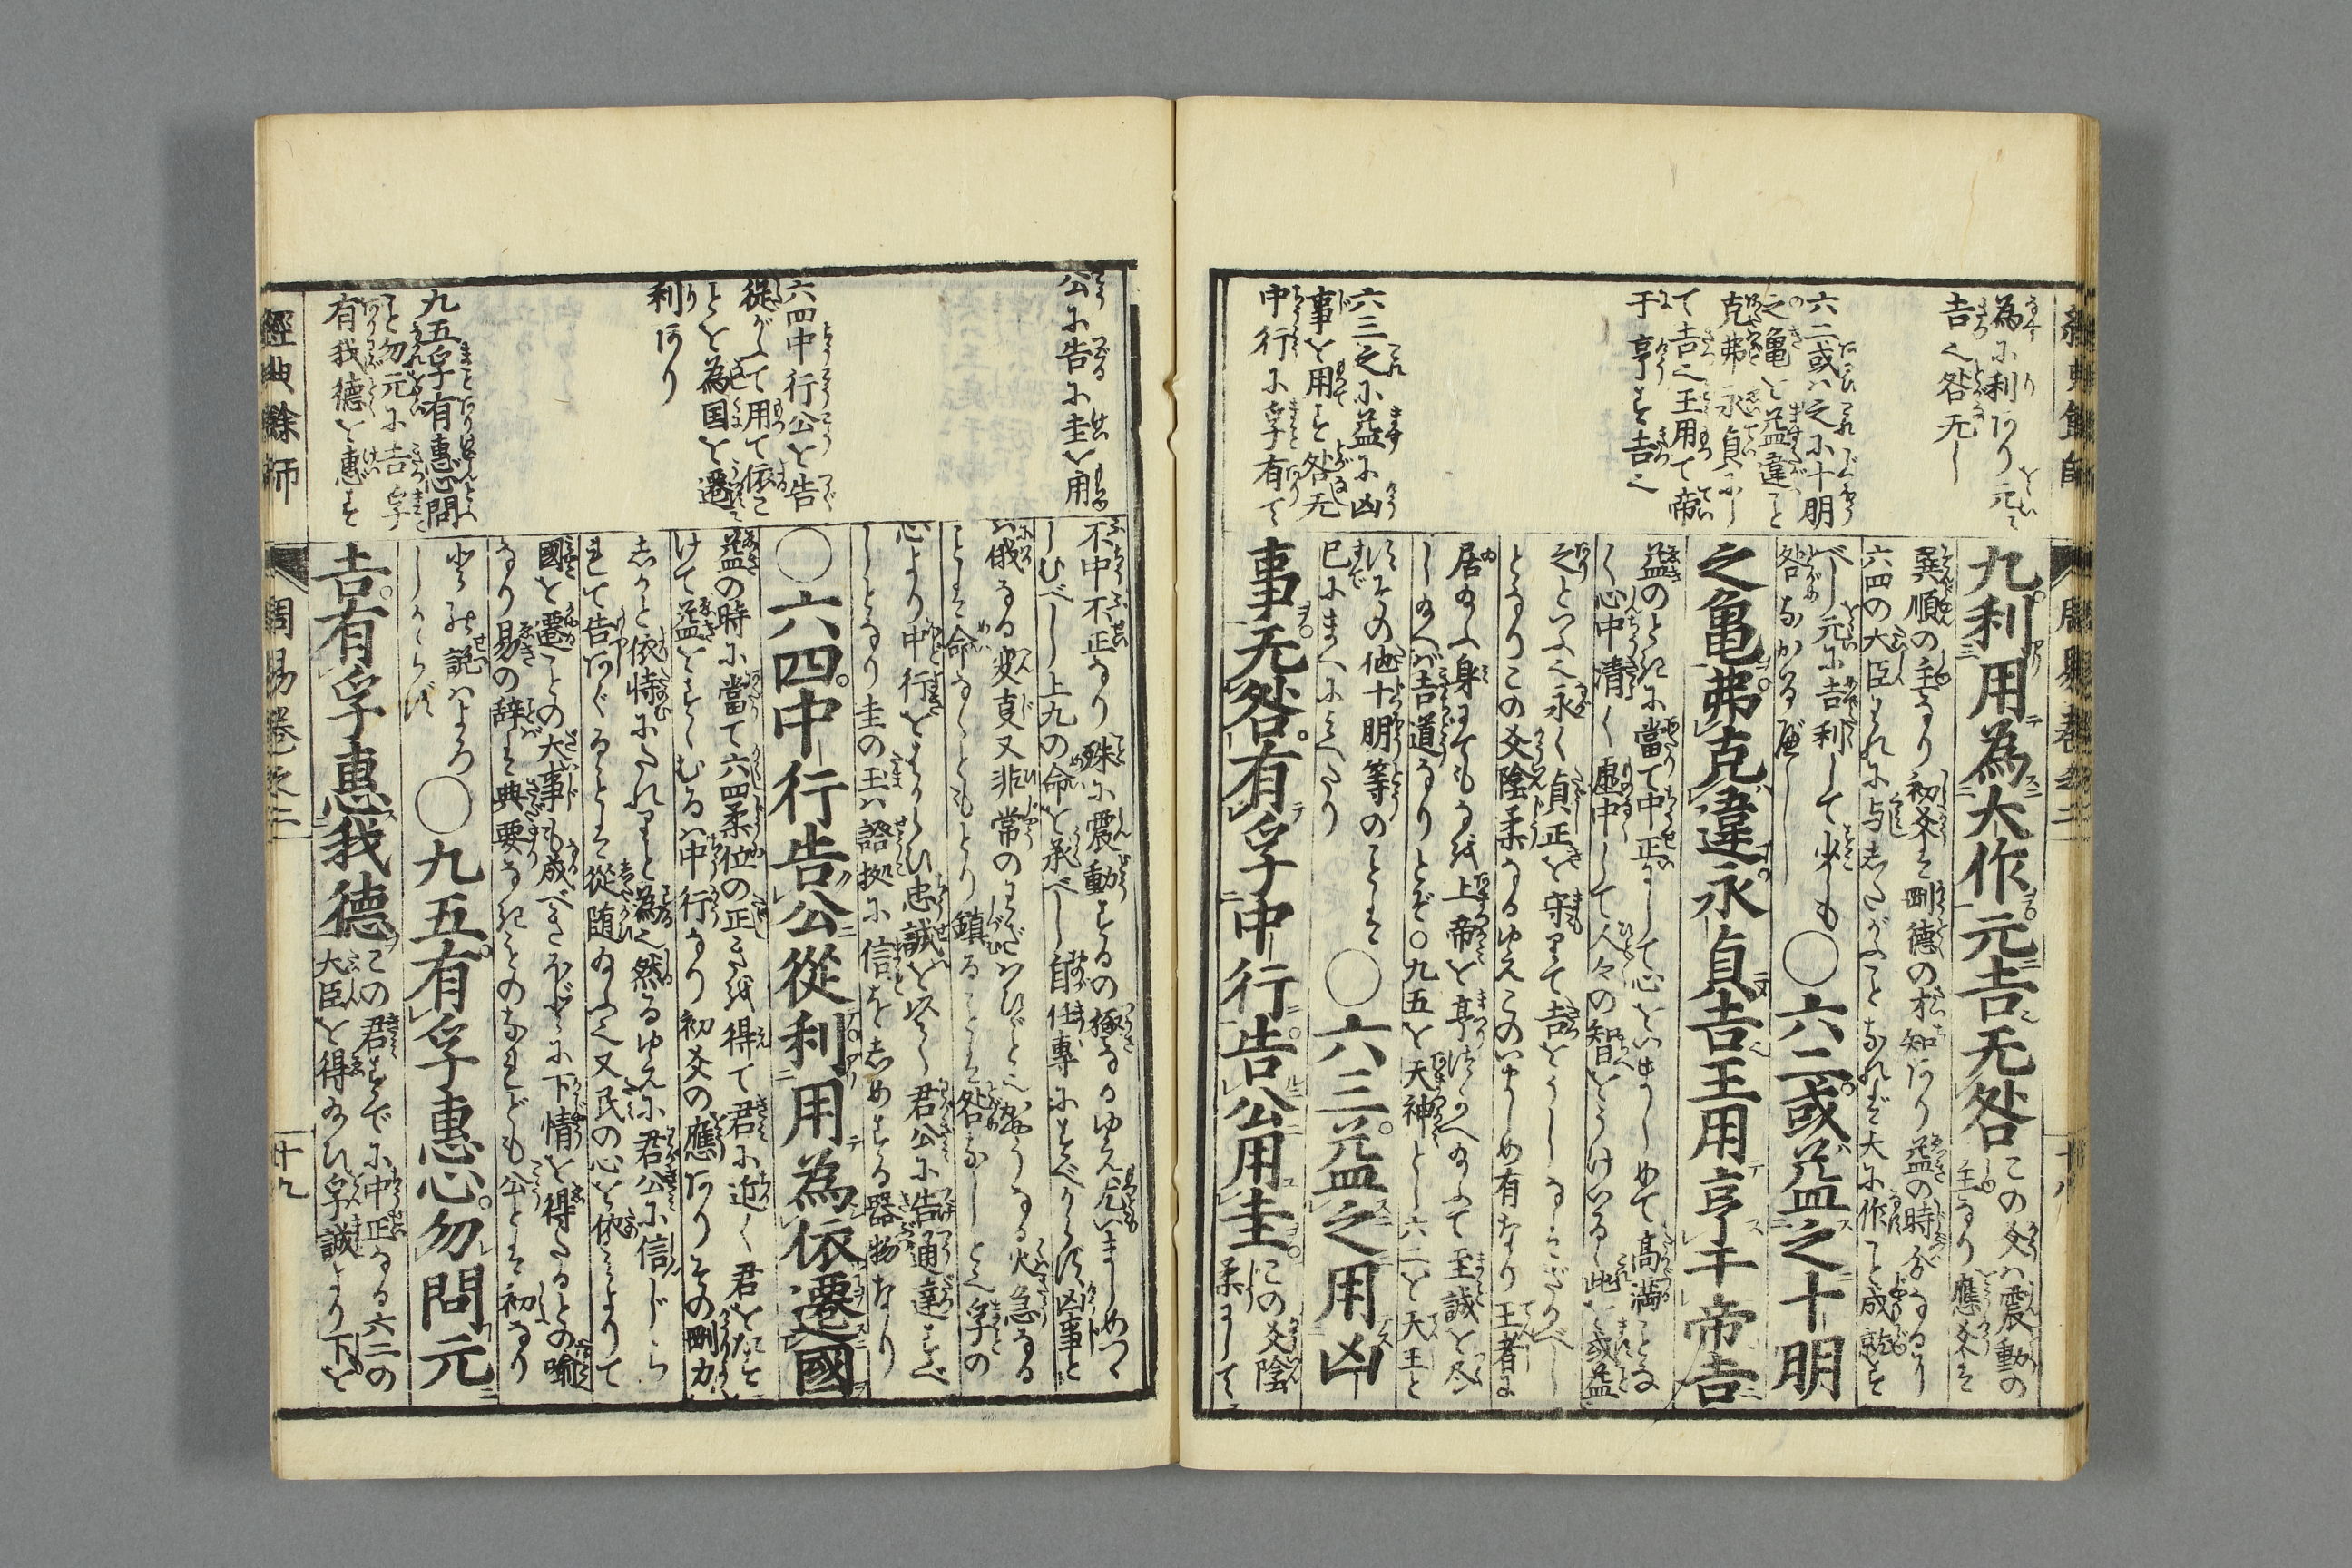 為に利あり元に
吉之咎无し
六二或は之に十明
之亀を益違こと
克弗永貞にし
て吉之王用て帝
于亨を吉之
六三之に益に凶
事を用を咎无
中行に孚有て
九利用為大作元吉无咎この爻は震動の
主なり應爻を
巽順の主なり初爻を剛德の才知あり益の時分なるより
六四の大臣これに与したがふことなれば大に作こと成就を
べし元に吉利して少も
咎なかるべし
〇六二或益之十明
之亀弗克違永貞吉王用亨于帝吉
益のときに當て中正にして心をいましめて高満ことな
く心中清く虚中して人々の智をうけいるゝ此を或益
之といふ之永く貞正を守りて吉をうしなふことなかるべし
となりこの爻陰柔なるゆえこのいましめ有なり王者に
居給ふ身にても上帝を亨つかへ給ふて至誠を尽
し給へば吉道なりとぞ〇九五を天神とし六二を天王と
その他十明等のことは
已にまへにみへたり
〇六三益之用凶
事无咎有孚中行告公用圭この爻陰
柔にして
公に告に圭を用
六四中行公を告
從がふて用て依こ
とを為国を遷
利あり
九五孚有惠心問
こと勿元に吉孚
有我德を惠を
不中不正なり殊に震動するの極なるゆえ尤いましめつゝ
しむべし上九の命を承べし自任專にすべからず凶事と
は俄なる変事又非常のわざはひなど之急なる火急なる
ことは命なくともとり鎮ることは咎なしと之孚の
心より中行をはからひ忠誠を以て君公に告通達すべ
しとなり圭の玉は證拠に信をしめする器物なり
〇六四中行告公從利用為依遷國
益の時に當て六四柔位の正きを得て君に近く君をたす
けて益をすゝむるは中行なり初爻の應ありその剛力
しかと依恃にたれりと為之然るゆえに君公に信じら
れて告あぐるとは從随給ふ之又民の心を依によりて
國を遷ことの大事も成べきほどに下情を得たるとの喩
なり易の辞を典要なきものなれども公とは初なり
とする説はよろ
しからず
〇九五有孚惠心勿問元
吉有孚惠我德この君すでに中正なる六二の
大臣を得給ひ孚誠より下を
經典餘師
周易卷之三
十九